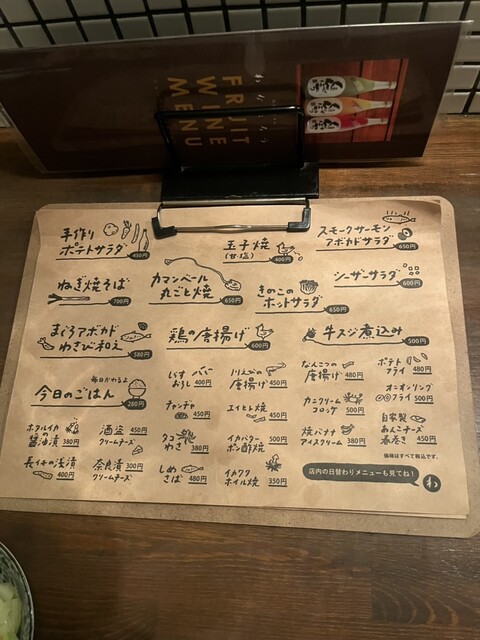 FRUIT
WINE
MENU
手作り
ポテトサラダ
450円
玉子焼
(甘塩)
400円
スモークサーモン
アボカドサラダ
650円
ねぎ焼そば
700円
カマンベール
丸ごと焼
650円
きのこの
ホットサラダ
650円
シーザーサラダ
600円
まぐろアボカド
わさび和え
580円
鶏の唐揚げ
600円
牛スジ煮込み
500円
毎日かわるよ
今日のごはん
280円
しらす
おろし
400円
川えびの
唐揚げ
450円
なんこつの
唐揚げ
480円
ポテト
フライ
480円
チャンヂャ
450円
エイヒレ焼
450円
カニクリーム
コロッケ
500円
オニオンリング
フライ
500円
ホタルイカ
醤油漬
380円
酒盗
クリームチーズ
450円
タコ
わさ
380円
イカバター
ポン酢焼
500円
焼バナナ
アイスクリーム
380円
自家製
あんこチーズ
春巻き
450円
長イモの浅漬
400円
奈良漬
クリームチーズ
300円
しめ
さば
480円
イカワタ
ホイル焼
350円
価格はすべて税込です。
店内の日替わりメニューも見てね!
わ